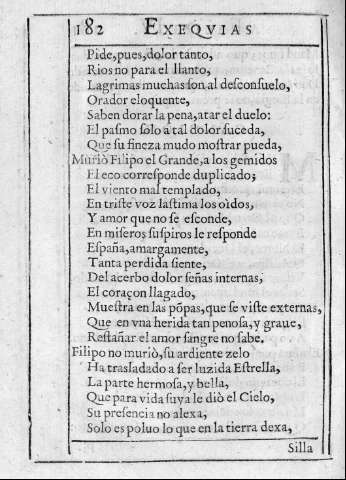 182 EXEQVIAS
Pide,pues,dolor tanto,
Rios no para el llanto,
Lagrimas muchas son al desconsuelo,
Orador eloquente,
Saben dorar la pena,atar el duelo:
El pasmo solo a tal dolor suceda,
Que su fineza mudo mostrar pueda,
Muriò Filipo el Grande,a los gemidos
El eco corresponde duplicado;
El viento mal templado,
En triste voz lastima los oìdos,
Y amor que no se esconde,
En miseros suspiros le responde
España,amargamente,
Tanta perdida siente,
Del acerbo dolor señas internas,
El coraçon llagado,
Muestra en las põpas,que se viste externas,
Que en vna herida tan penosa,y graue,
Restañar el amor sangre no sabe.
Filipo no muriò,su ardiente zelo
Ha trasladado a ser luzida Estrella,
La parte hermosa,y bella,
Que para vida suya le diò el Cielo,
Su presencia no alexa,
Solo es poluo lo que en la tierra dexa,
Silla